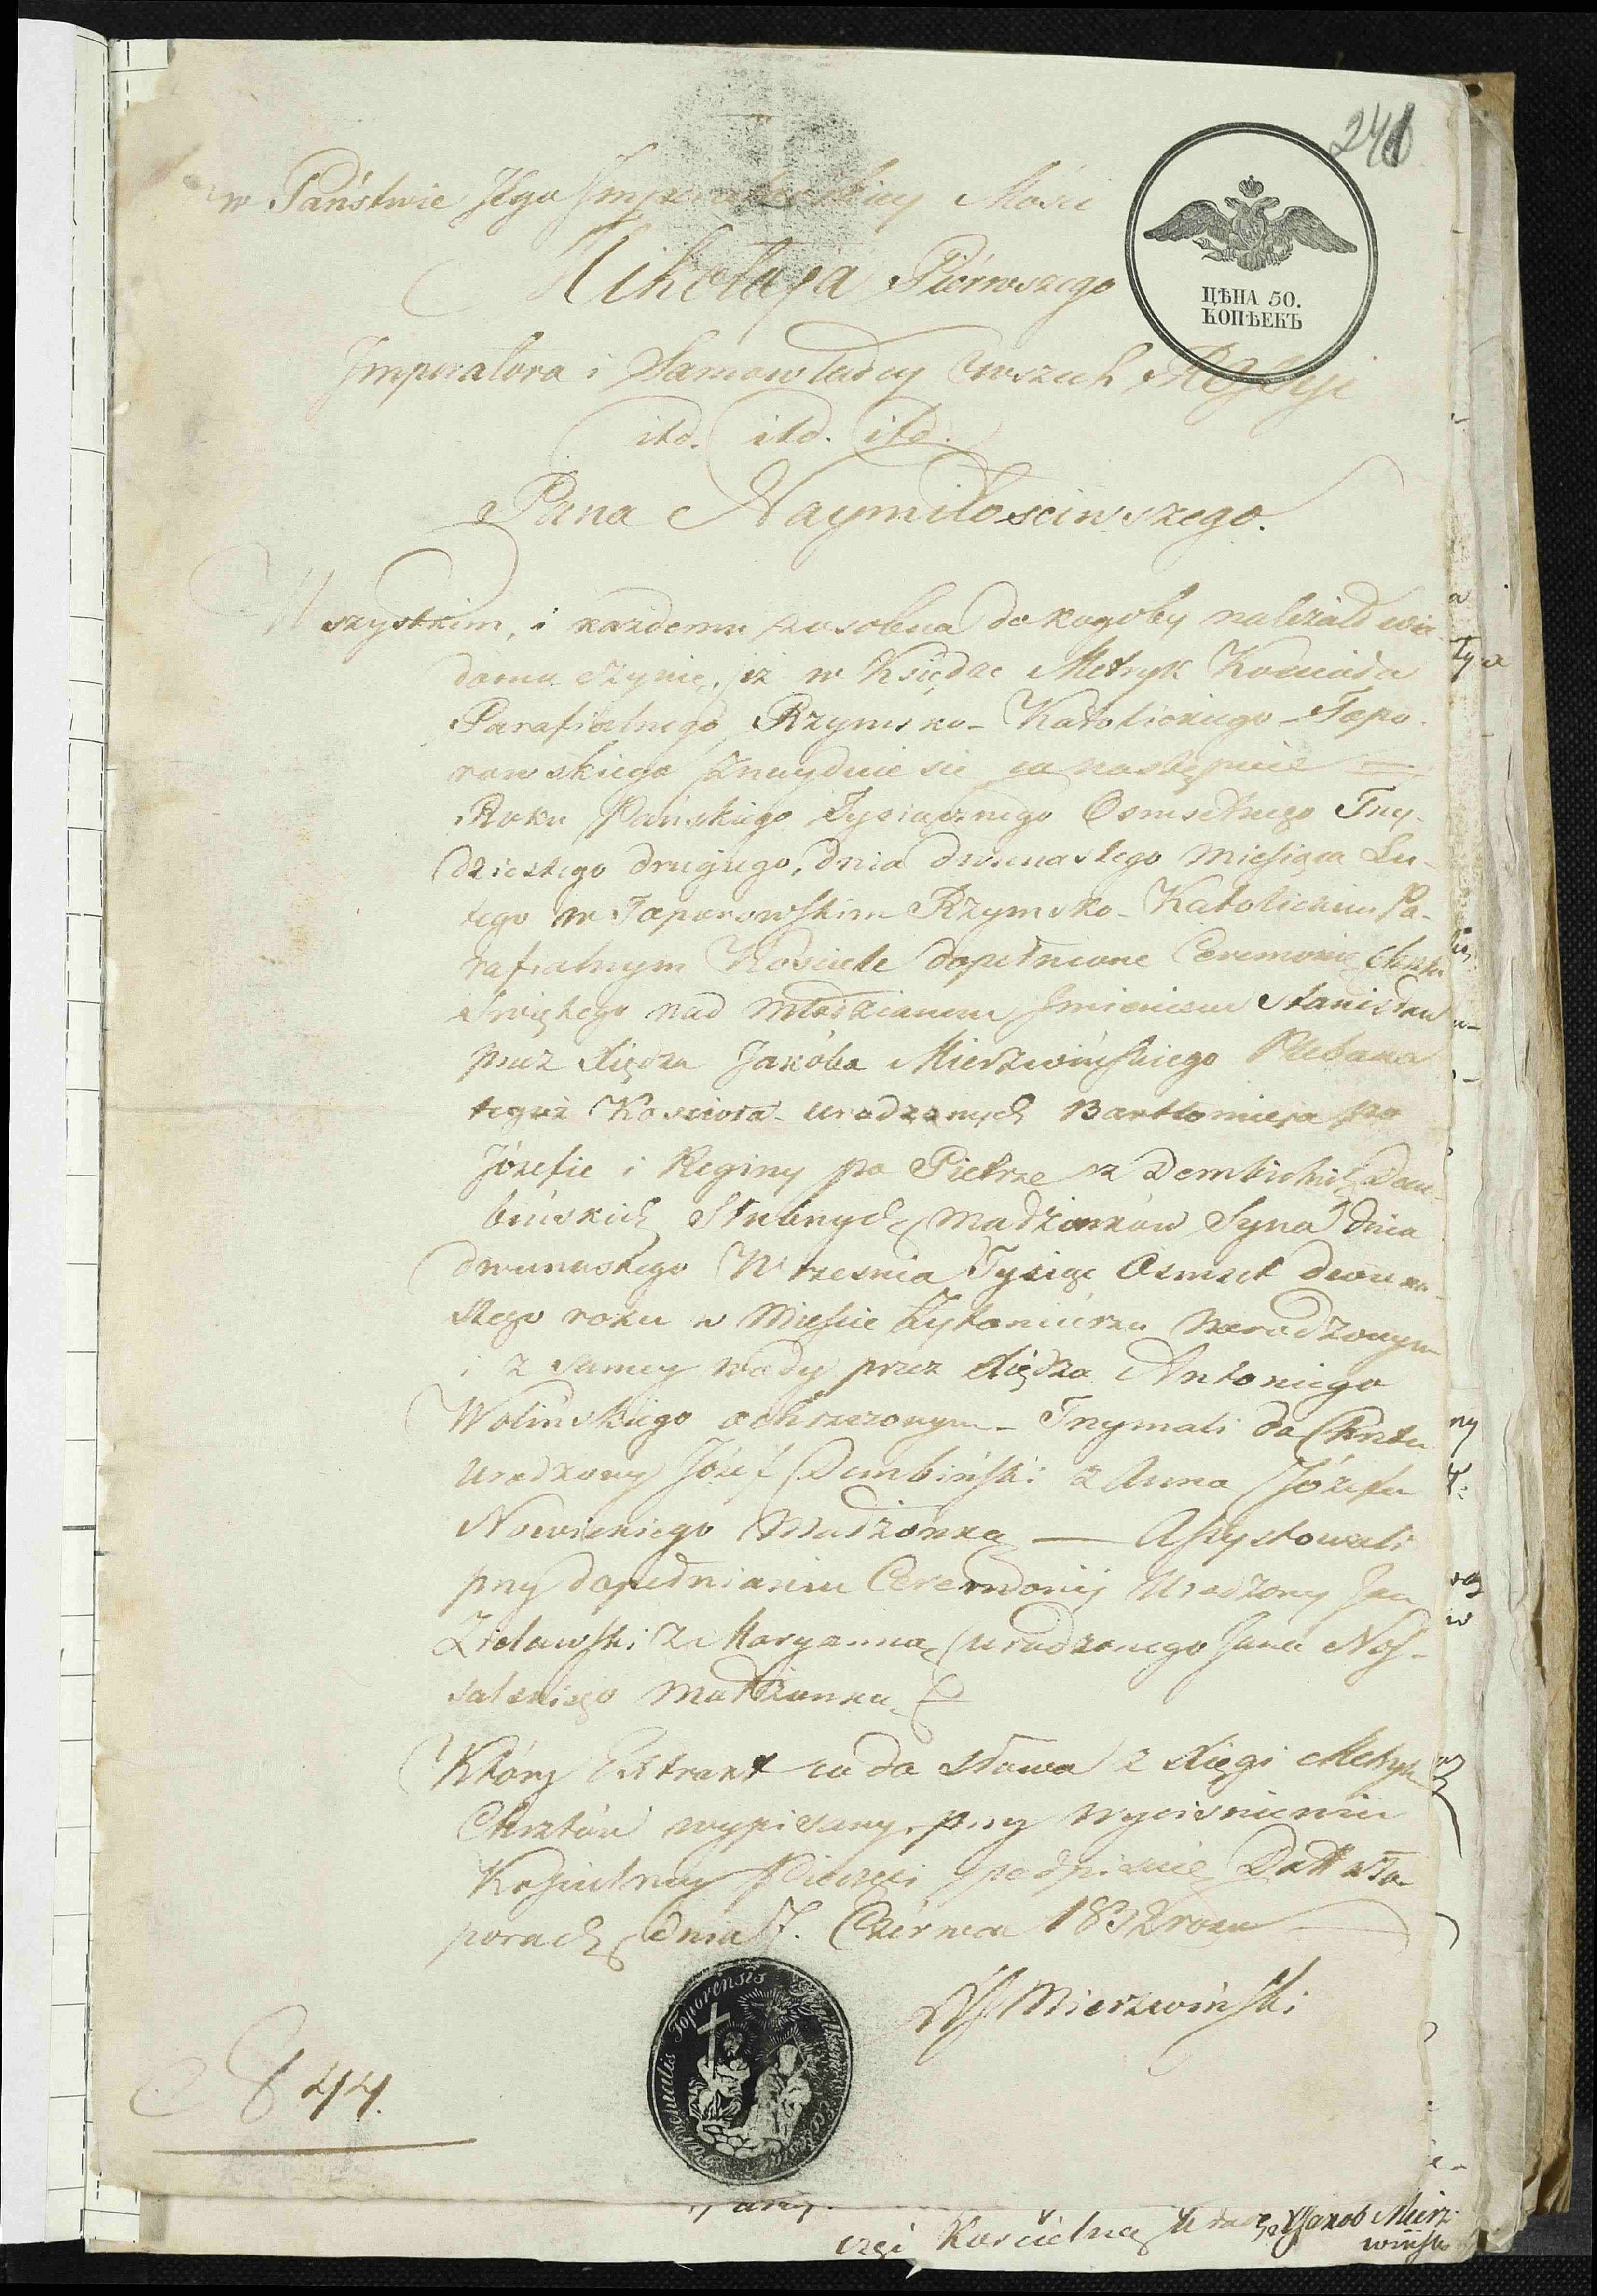 241
w Państwie Jego Imperatorskiey Mości
Mikołaja Pierwszego
ЦѢНА 50.
КОПѢЕКЪ
Imperatora i Samowładcy Wszech Rossyi
itd. itd. itd.
Pana Naymiłościwszego.
Wszystkim, i każdemu zosobna do kogoby należało wia-
domo czynię, iż w Księdze Metryk Kościoła
Parafialnego Rzymsko-Katolickiego Topo-
rowskiego znayduie się co następuie =
Roku Pańskiego Tysiącznego Osmsetnego Trzy-
dziestego drugiego, dnia dwunastego Miesiąca Lu-
tego w Toporowskim Rzymsko-Katolickim Pa-
rafialnym Kościele dopełnione Ceremonie Chrztu
Świętego nad młodzianem Imieniem Stanisław
przez Xiędza Jakóba Mierzwińskiego Plebana
tegoż Kościoła - urodzonych Bartłomieja po
Józefie i Reginy po Pietrze z Dembickich Dem-
bińskich Ślubnych Małżonków Syna dnia
dwunastego Września Tysiąc Osmset dwuna-
stego roku w Mieście Żytomierzu narodzonym
i z samey wody przez Xiędza Antoniego
Wolińskiego ochrzczonym - Trzymali do Chrztu
Urodzony Józef Dembiński z Anną Józefa
Nowickiego Małżonką — Assystowali
przy dopełnianiu Ceremonij Urodzony Jan
Zielawski z Maryanną urodzonego Jana Nos-
salskiego Małżonką
Który Extrakt co do słowa z Xięgi Metryk
Chrztów wypisany przy wyciśnieniu
Kościelney Pieczęci podpisuię Datt w To-
porach dnia 7. Czerwca 1832 roku
X J Mierzwiński
Parochialis Toporensis
44.
częi Kościelney X Jakob Mierz-
wiński